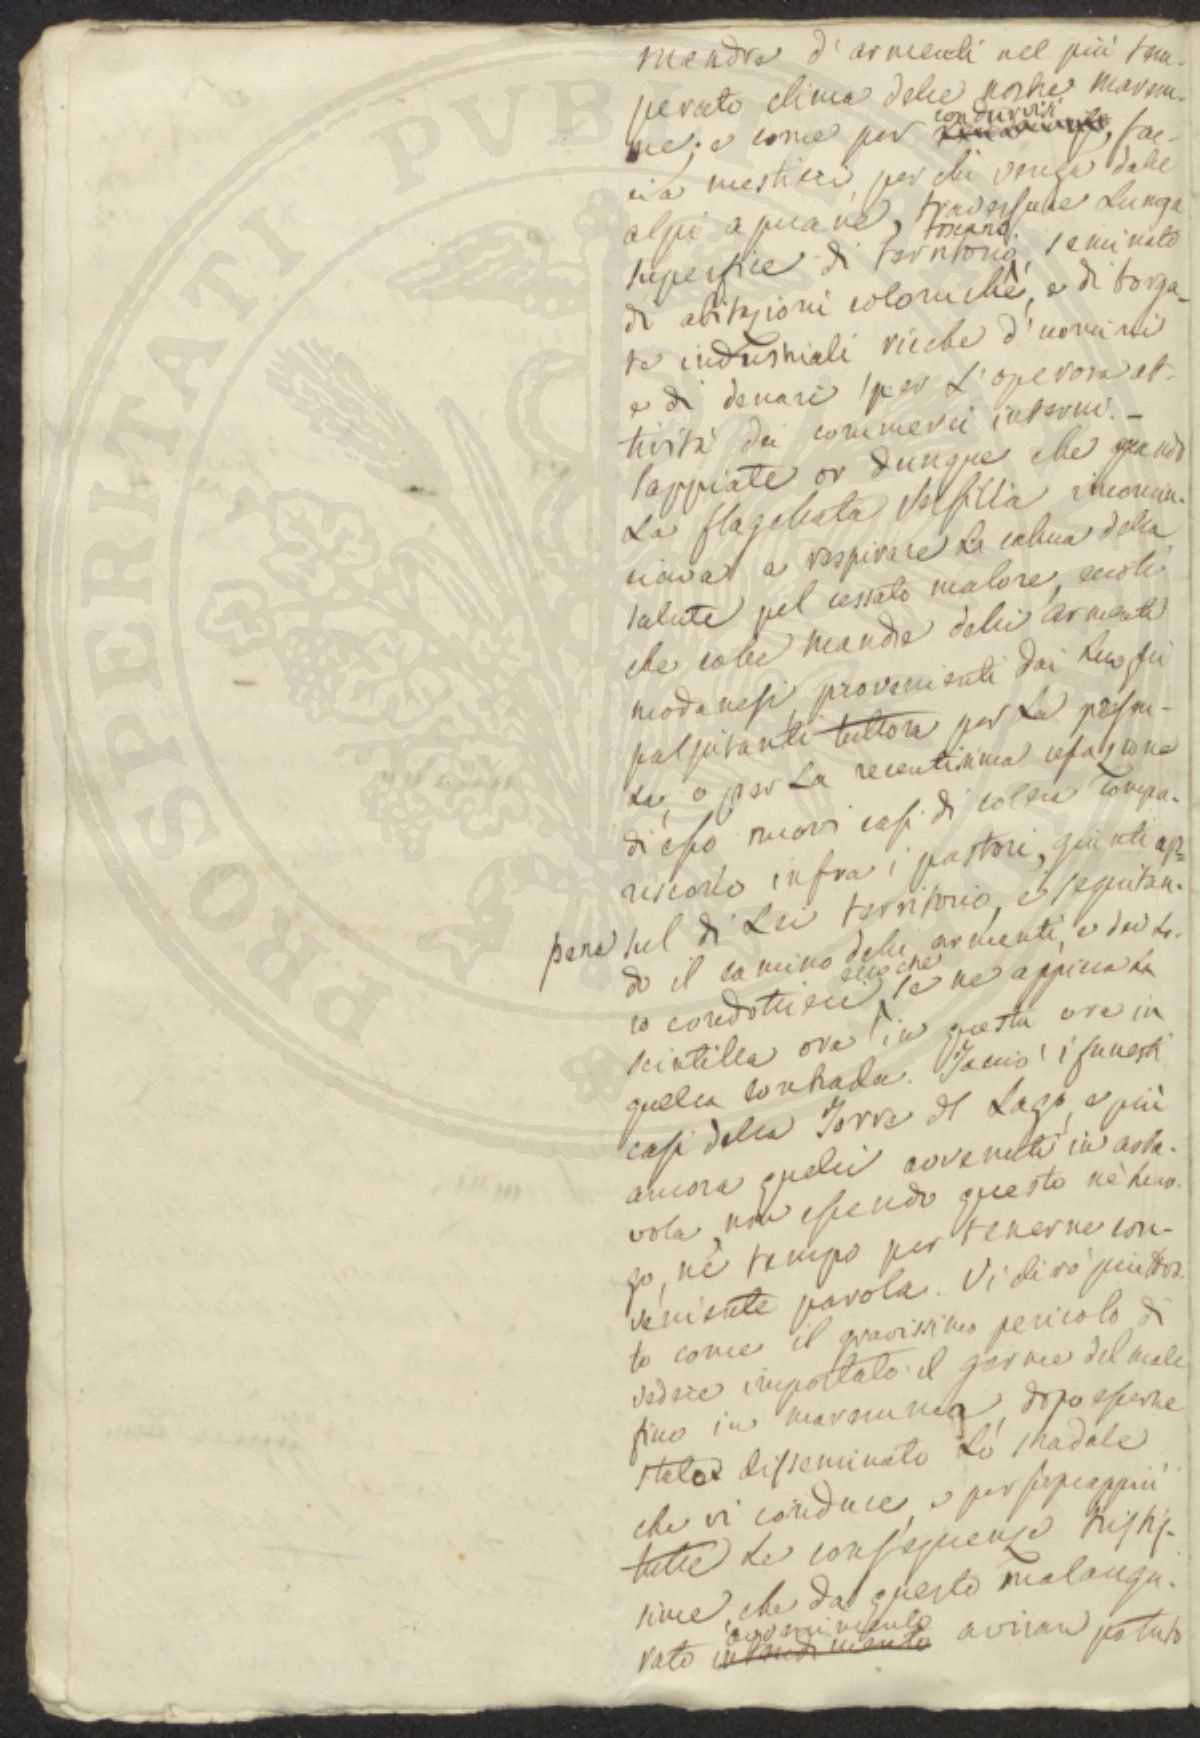 mandre d'armenti nel più tem-
perato clima delle nostre marem-
me; e come per condurvisi, fac-
cia mestieri, per chi venga dalle
alpi apuane, traversare lunga
superficie di territorio toscano, seminato
di abitazioni coloniche, e di borga-
te industriali ricche d'uomini
e di denari per l'operosa at-
tività dei commerci interni. –
Sappiate or dunque che quando
la flagellata Versilia incomin-
ciava a respirare la calma della
salute pel cessato malore, ecco
che colle mandre delli armenti
modanesi, provenienti dai luoghi
palpitanti tuttora per la presen-
za, o per la recentissima cessazione
di esso nuovi casi di colera compa-
riscono infra i pastori, giunti ap-
pena sul di lei territorio, e seguitan-
do il camino delli armenti, e dei lo-
ro condottieri, ecco che se ne appicca la
scintilla ora in questa ora in
quella contrada. Taccio i funesti
casi della Torre del Lago, e più
ancora quelli avvenuti in
non essendo questo nè luo-
go, nè tempo per tenerne con-
veniente parola. Vi dirò piuttos-
to come il gravissimo pericolo di
vedere importato il germe del male
fino in maremma, dopo esserne
stato disseminato lo stradale
che vi conduce, e per soprappiù
tutte le conseguenze tristis-
sime, che da questo malaugu-
rato avvenimento avrian potuto